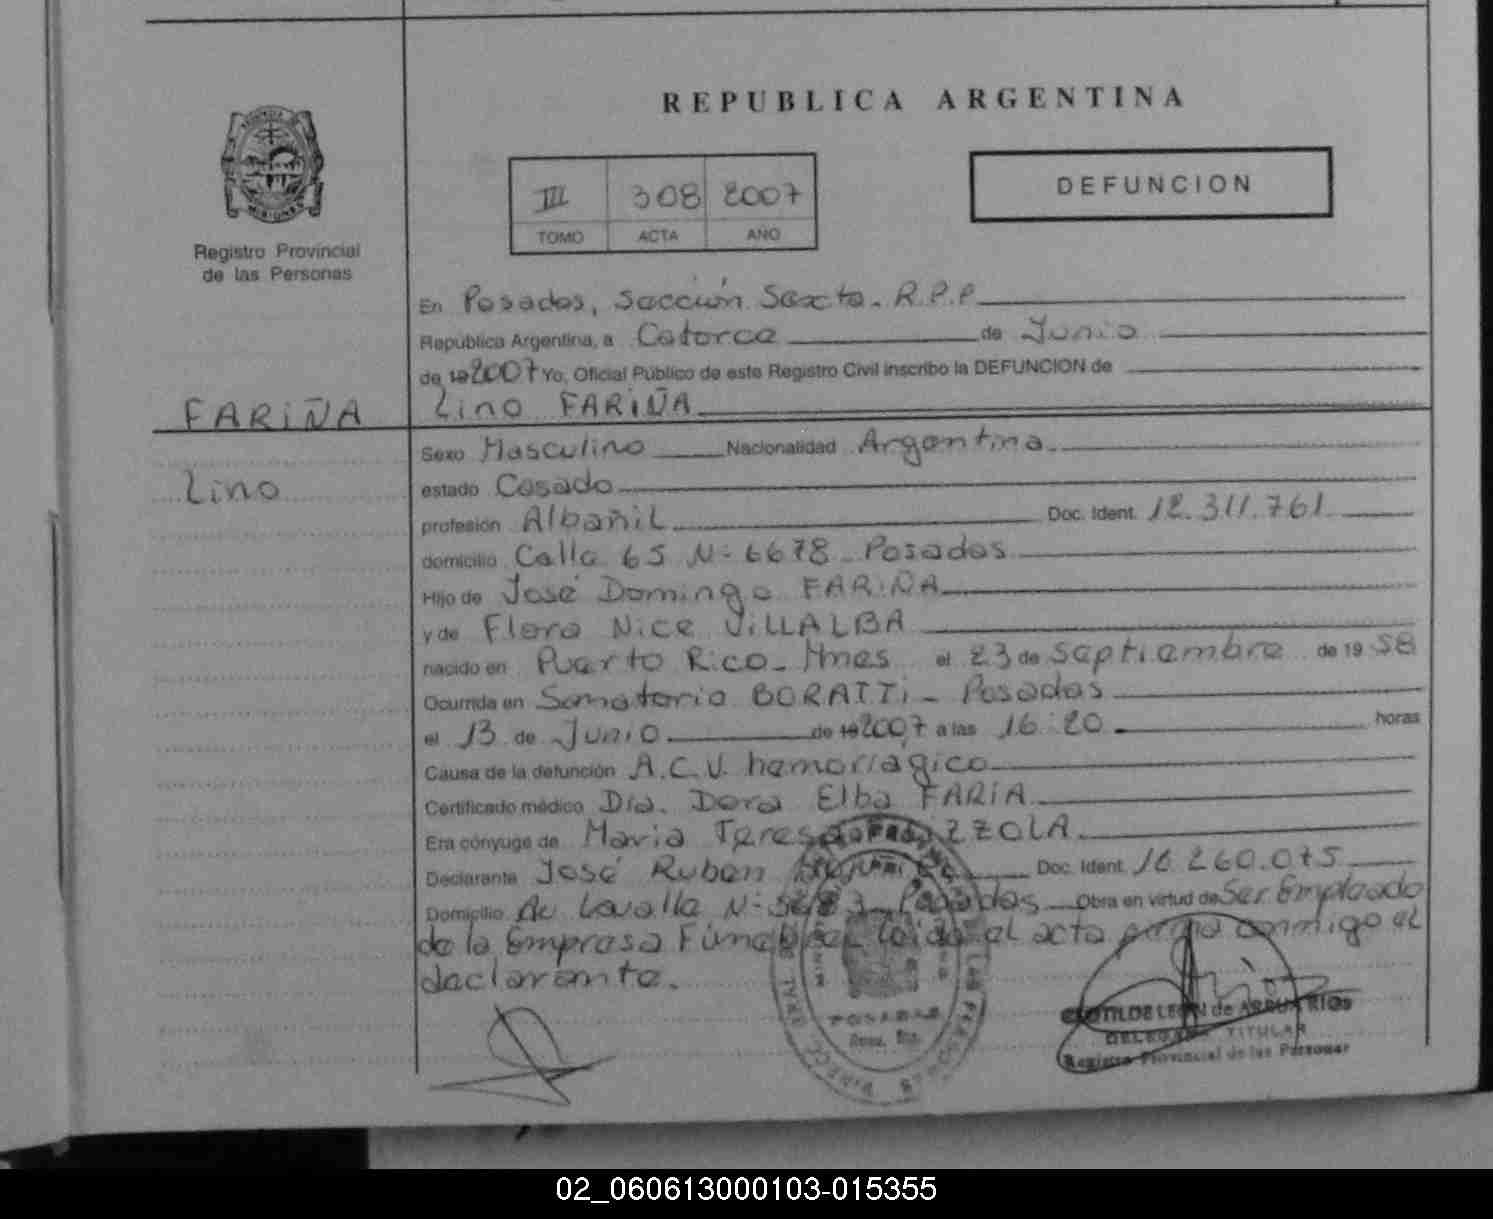 REPUBLICA ARGENTINA
III 308 2007
TOMO ACTA AÑO
DEFUNCION
Registro Provincial
de las Personas
En Posadas, Sección Sexta. R.P.P
República Argentina, a Catorce de Junio
de 19 2007 Yo, Oficial Público de este Registro Civil inscribo la DEFUNCION de
FARIÑA
Lino FARIÑA
Sexo Masculino Nacionalidad Argentina
Lino
estado Casado
profesión Albañil Doc. Ident. 12.311.761
domicilio Calle 65 N= 6678 Posadas
Hijo de José Domingo FARIÑA
y de Flora Nice VILLALBA
nacido en Puerto Rico - Mnes el 23 de Septiembre de 19 58
Ocurrida en Sanatorio BORATTI - Posadas
el 13 de Junio de 19 2007 a las 16:20 horas
Causa de la defunción A.C.V. hemorrágico
Certificado médico Dra. Dora Elba FARIA
Era cónyuge de Maria Teresa
Declarante José Ruben Doc. Ident. 16.260.075
Domicilio Av Lavalle N= Posadas Obra en virtud de Ser Empleado
de la Empresa Fúnebre. Leída el acta firma conmigo el
declarante.
POSADAS
CLOTILDE LEON de ARRUA RIOS
DELEGADA TITULAR
Registro Provincial de las Personas
02_060613000103-015355